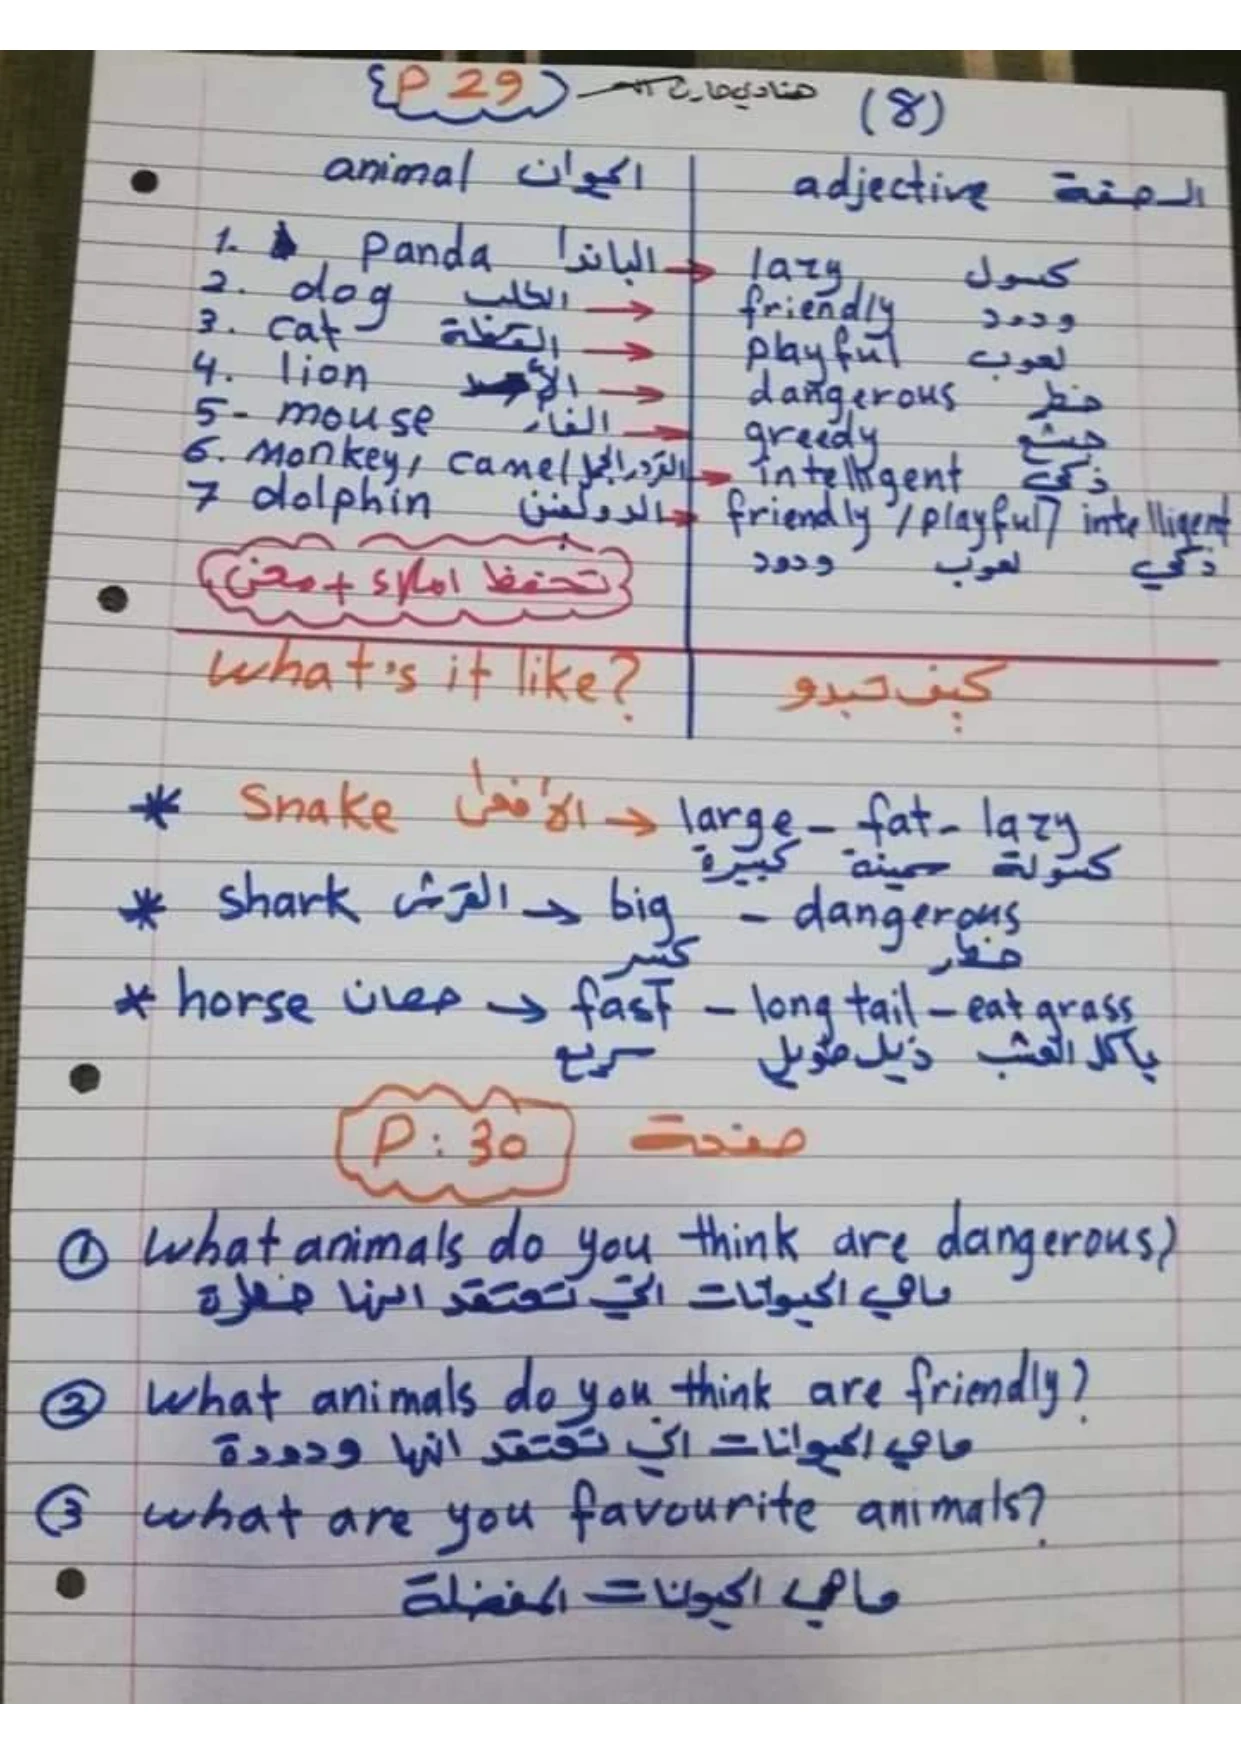 P 29 (8)
animal الحيوان adjective الصفة
1. Panda الباندا → lazy كسول
2. dog الكلب → friendly ودود
3. cat القطة → playful لعوب
4. lion الأسد → dangerous خطر
5- mouse الفأر → greedy جشع
6. Monkey, camel القرد, الجمل → intelligent ذكي
7 dolphin الدولفين → friendly / playful / intelligent
ودود لعوب ذكي
تحفظ املاء + معنى
What's it like? كيف تبدو
* Snake الأفعى → large - fat - lazy
كبيرة سمينة كسولة
* shark القرش → big - dangerous
كبير خطر
* horse حصان → fast - long tail - eat grass
سريع ذيل طويل يأكل العشب
P: 30 صفحة
① What animals do you think are dangerous?
ماهي الحيوانات التي تعتقد انها خطرة
② What animals do you think are friendly?
ماهي الحيوانات التي تعتقد انها ودودة
③ what are you favourite animals?
ماهي الحيوانات المفضلة